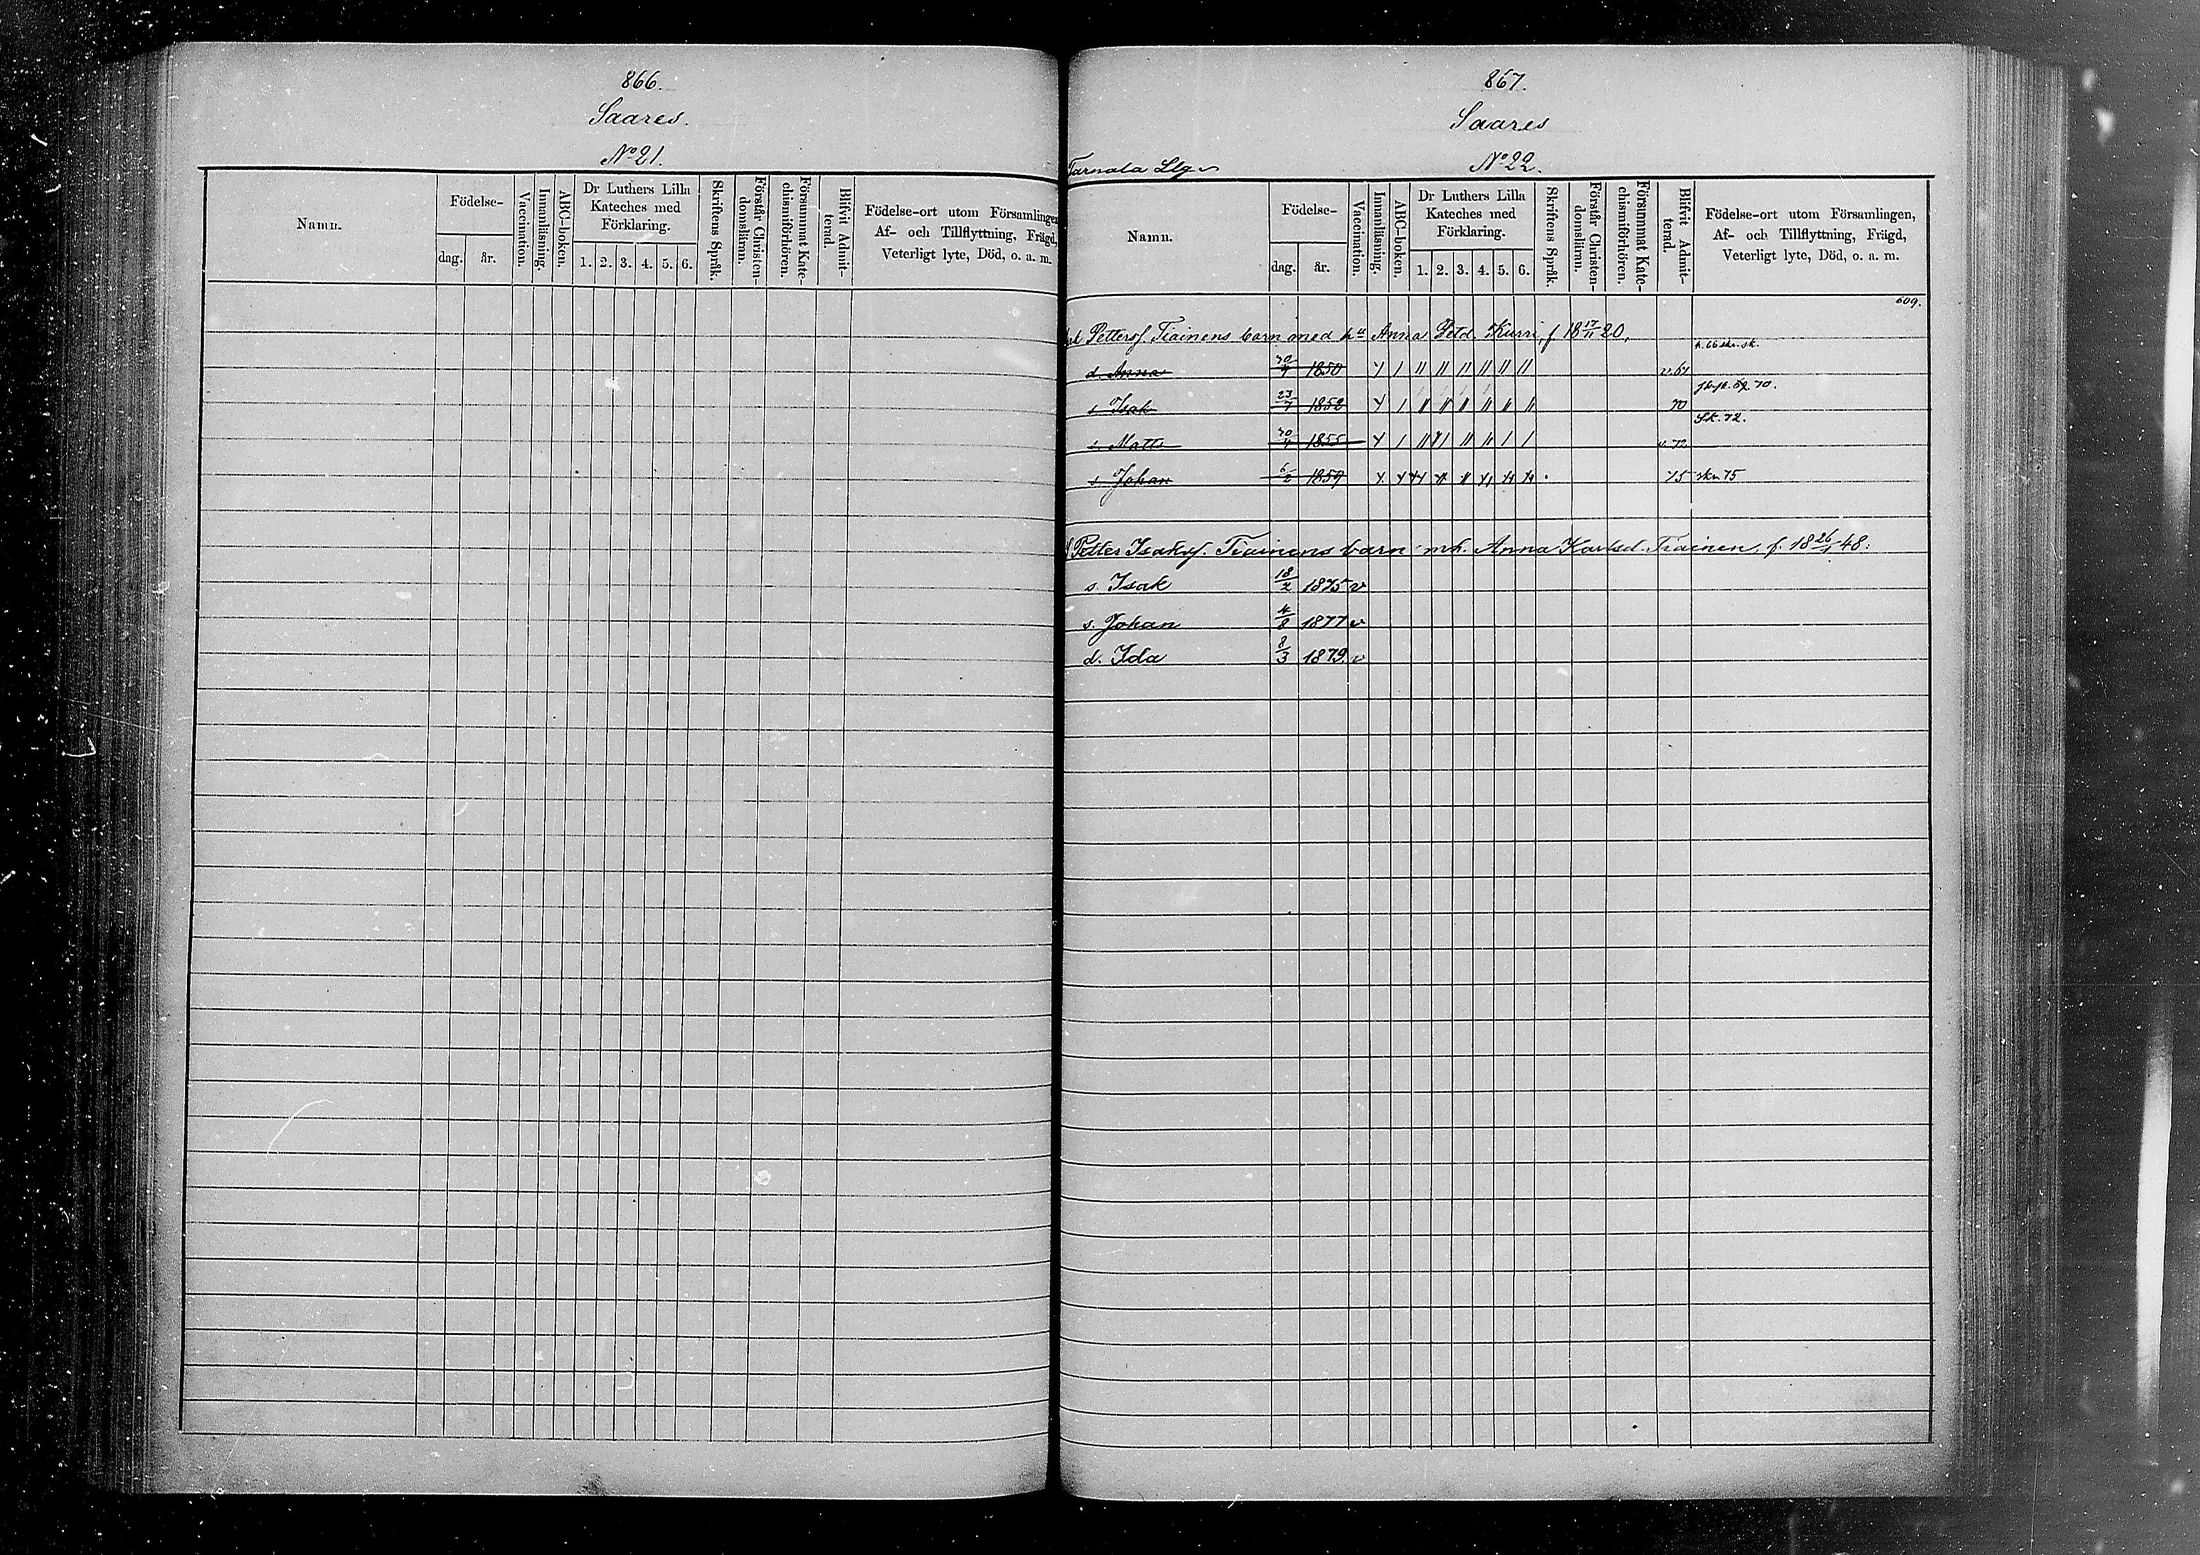 866.
Saares.
No 21.
Namn.
Födelse-
dag. år.
Vaccination.
Innanläsning.
ABC-boken.
Dr Luthers Lilla
Kateches med
Förklaring.
1. 2. 3. 4. 5. 6.
Skriftens Språk.
Förstår Christen-
domsläran.
Försummat Kate-
chismiförhören.
Blifvit Admit-
terad.
Födelse-ort utom Församlingen,
Af- och Tillflyttning, Frägd,
Veterligt lyte, Död, o. a. m.
867.
Saares
No 22.
Tarnala
Namn.
Födelse-
dag. år.
Vaccination.
Innanläsning.
ABC-boken.
Dr Luthers Lilla
Kateches med
Förklaring.
1. 2. 3. 4. 5. 6.
Skriftens Språk.
Förstår Christen-
domsläran.
Försummat Kate-
chismiförhören.
Blifvit Admit-
terad.
Födelse-ort utom Församlingen,
Af- och Tillflyttning, Frägd,
Veterligt lyte, Död, o. a. m.
609.
Petterss. Tiainens barn med hu Anna Kurri, f 18 17/11 20,
d. Anna 1850
s. Isak 23/7 1852 70
s. Matts 1855 Sk. 72.
s. Johan 6/2 1859 75 skr 75
Petter Isakss. Tiainens barn mh. Anna Karlsd. Tiainen, f. 18 26/1 48:
s. Isak 18/2 1875 v
s. Johan 4/8 1877 v
d. Ida 8/3 1879. v